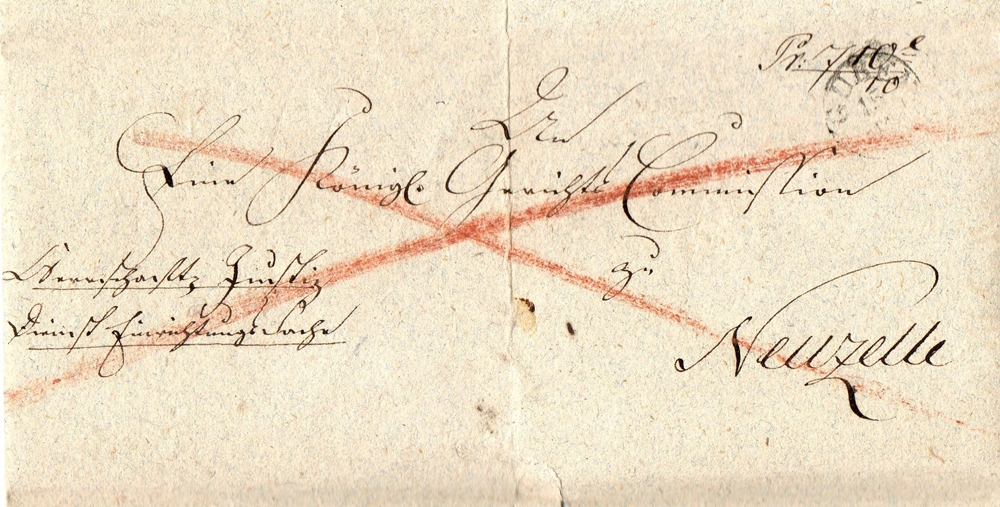 Pr. 7/10 e
10
An
Eine Königl. Gerichts Commission
zu
Neuzelle
Herrschaftl. Justiz
Dienst Einrichtungs Sache